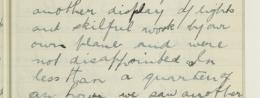 another display of lights
and skilful work by our
own planes and were
not disappointed. In
less than a quarter of
an hour we saw another